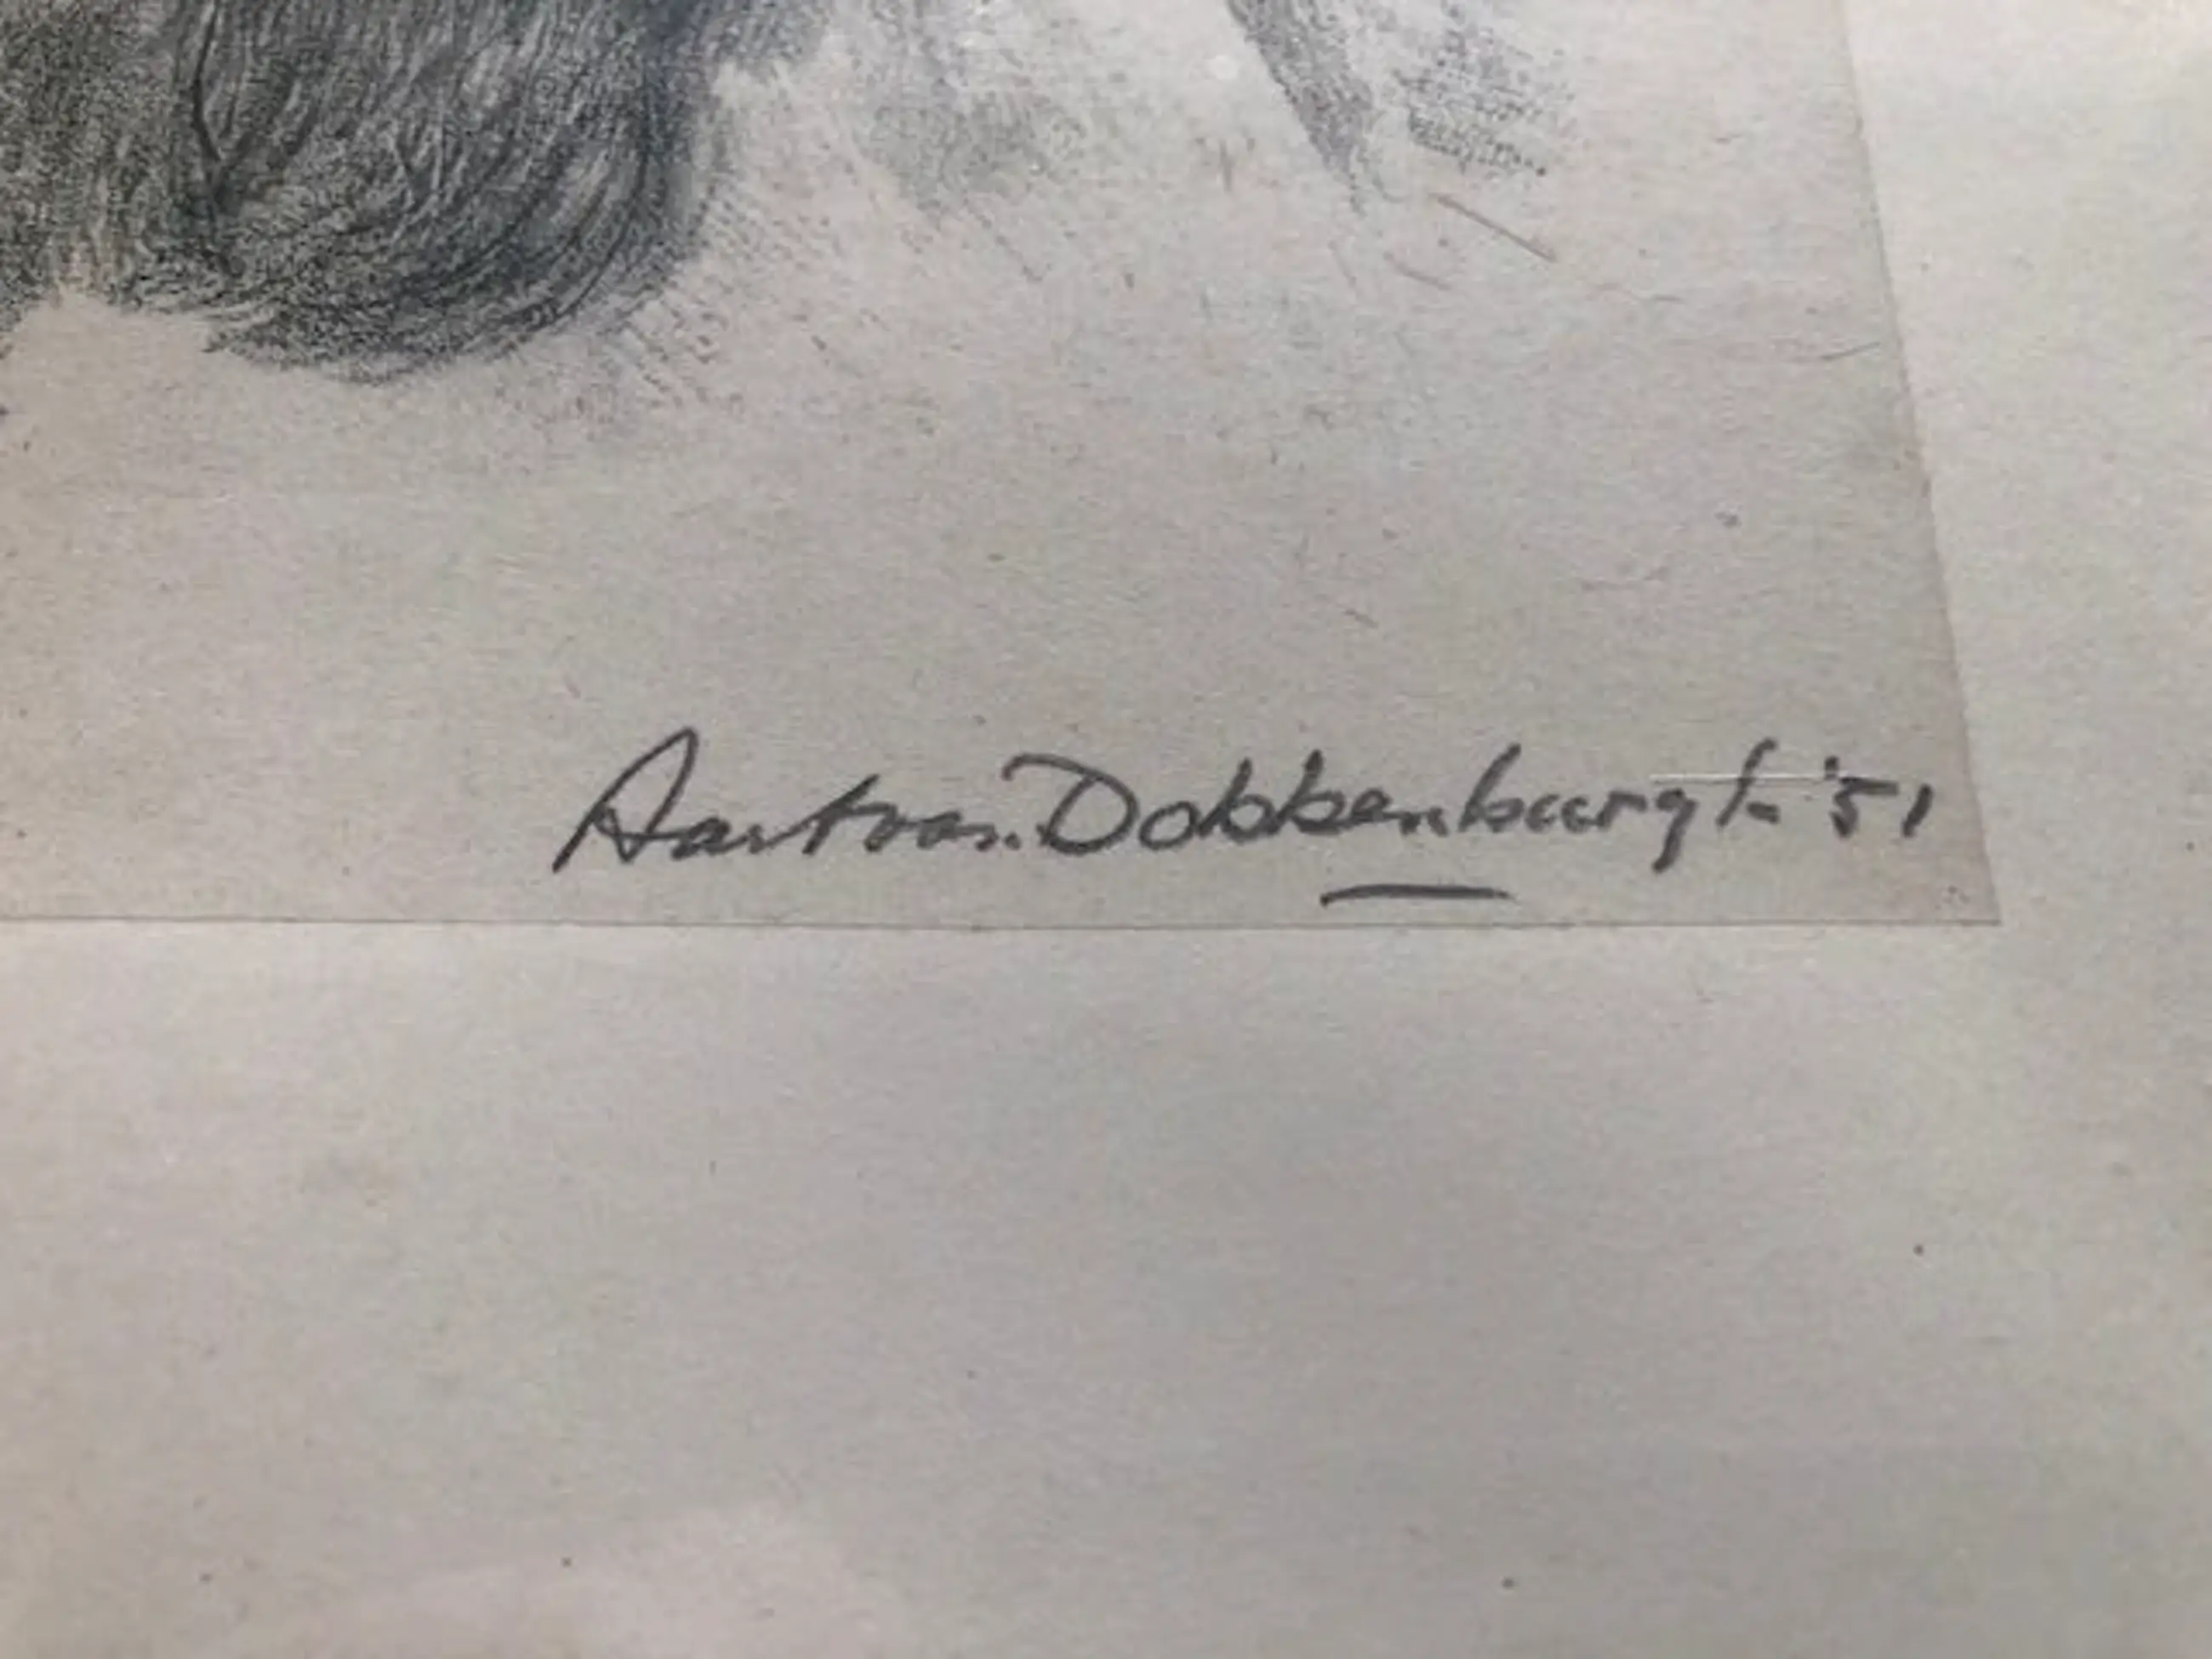 Aart van Dobbenburgh '51